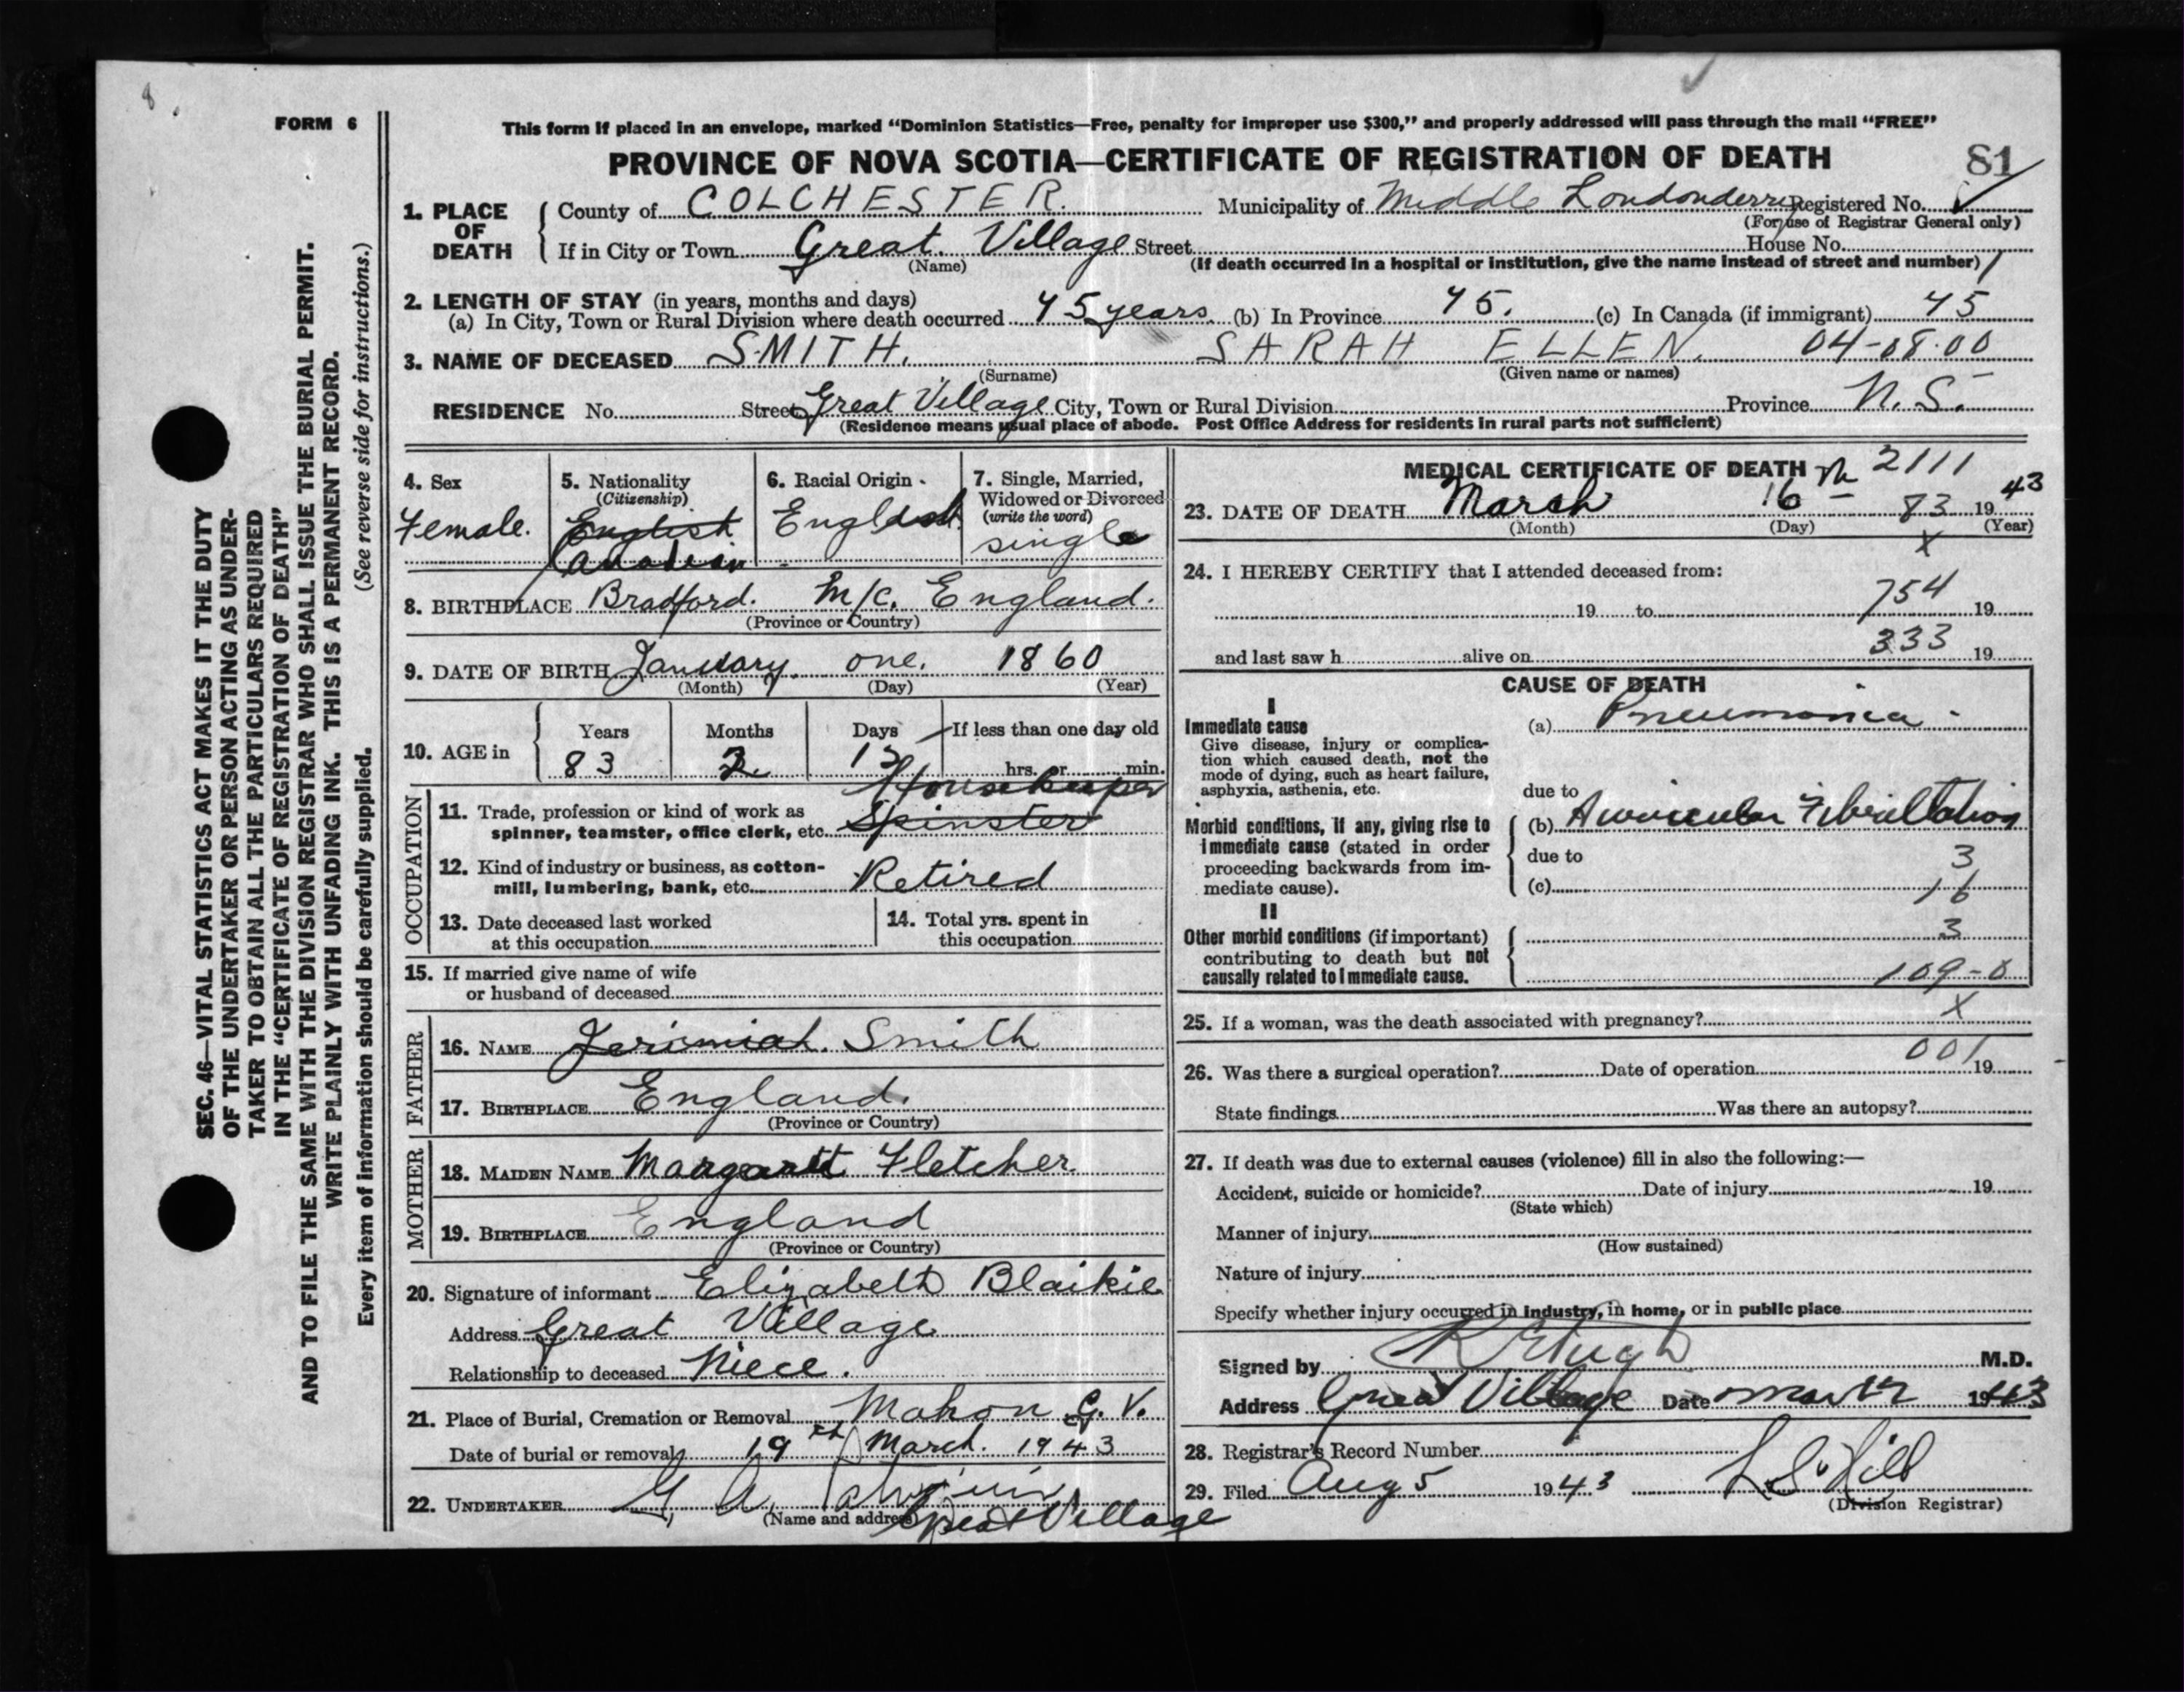 8
FORM 6
This form if placed in an envelope, marked "Dominion Statistics—Free, penalty for improper use $300," and properly addressed will pass through the mail "FREE"
PROVINCE OF NOVA SCOTIA—CERTIFICATE OF REGISTRATION OF DEATH 81
1. PLACE OF DEATH
County of COLCHESTER. Municipality of Middle Londonderry Registered No.
(For use of Registrar General only)
If in City or Town Great Village Street House No.
(Name) (If death occurred in a hospital or institution, give the name instead of street and number)
2. LENGTH OF STAY (in years, months and days)
(a) In City, Town or Rural Division where death occurred 45 years (b) In Province 45. (c) In Canada (if immigrant) 45
3. NAME OF DECEASED SMITH, SARAH ELLEN. 04-08-00
(Surname) (Given name or names)
RESIDENCE No. Street Great Village City, Town or Rural Division Province N.S.
(Residence means usual place of abode. Post Office Address for residents in rural parts not sufficient)
4. Sex
Female.
5. Nationality
(Citizenship)
English
Canadian
6. Racial Origin
English
7. Single, Married,
Widowed or Divorced
(write the word)
single
8. BIRTHPLACE Bradford. M/c. England.
(Province or Country)
9. DATE OF BIRTH January one. 1860
(Month) (Day) (Year)
10. AGE in
Years Months Days If less than one day old
83 2 hrs. or min.
OCCUPATION
Housekeeper
11. Trade, profession or kind of work as
spinner, teamster, office clerk, etc. Spinster
12. Kind of industry or business, as cotton-
mill, lumbering, bank, etc. Retired
13. Date deceased last worked
at this occupation
14. Total yrs. spent in
this occupation
15. If married give name of wife
or husband of deceased
FATHER
16. NAME Jerimiah. Smith
17. BIRTHPLACE England.
(Province or Country)
MOTHER
18. MAIDEN NAME Margarett Fletcher
19. BIRTHPLACE England
(Province or Country)
20. Signature of informant Elizabeth Blaikie
Address Great Village
Relationship to deceased Niece.
21. Place of Burial, Cremation or Removal Mahon G.V.
Date of burial or removal 19th March. 1943
22. UNDERTAKER G. A.
(Name and address) Great Village
MEDICAL CERTIFICATE OF DEATH 2111
23. DATE OF DEATH March 16th 83 1943
(Month) (Day) (Year)
x
24. I HEREBY CERTIFY that I attended deceased from:
19 to 754 19
and last saw h alive on 333 19
CAUSE OF DEATH
I
Immediate cause
Give disease, injury or complica-
tion which caused death, not the
mode of dying, such as heart failure,
asphyxia, asthenia, etc.
(a) Pneumonia
due to
Morbid conditions, if any, giving rise to
immediate cause (stated in order
proceeding backwards from im-
mediate cause).
(b) Auricular Fibrillation
due to 3
(c) 16
II
Other morbid conditions (if important)
contributing to death but not
causally related to immediate cause.
3
109-0
25. If a woman, was the death associated with pregnancy? x
26. Was there a surgical operation? Date of operation 001 19
State findings Was there an autopsy?
27. If death was due to external causes (violence) fill in also the following:—
Accident, suicide or homicide? Date of injury 19
(State which)
Manner of injury
(How sustained)
Nature of injury
Specify whether injury occurred in industry, in home, or in public place
Signed by M.D.
Address Great Village Date 1943
28. Registrar's Record Number
29. Filed Aug 5 1943 Hill
(Division Registrar)
SEC. 46—VITAL STATISTICS ACT MAKES IT THE DUTY
OF THE UNDERTAKER OR PERSON ACTING AS UNDER-
TAKER TO OBTAIN ALL THE PARTICULARS REQUIRED
IN THE "CERTIFICATE OF REGISTRATION OF DEATH"
AND TO FILE THE SAME WITH THE DIVISION REGISTRAR WHO SHALL ISSUE THE BURIAL PERMIT.
WRITE PLAINLY WITH UNFADING INK. THIS IS A PERMANENT RECORD.
Every item of information should be carefully supplied. (See reverse side for instructions.)